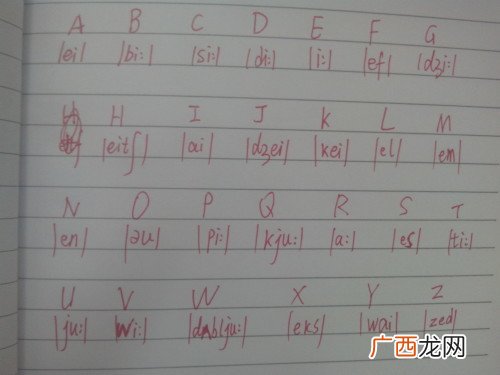 A B C D E F G
|ei| |bi:| |si:| |di:| |i:| |ef| |dzj:|
H I J K L M
|eitʃ| |ai| |dzei| |kei| |el| |em|
N O P Q R S T
|en| |əu| |pi:| |kju:| |a:| |es| |ti:|
U V W X Y Z
|ju:| |wi:| |dʌblju:| |eks| |wai| |zed|
广西龙网